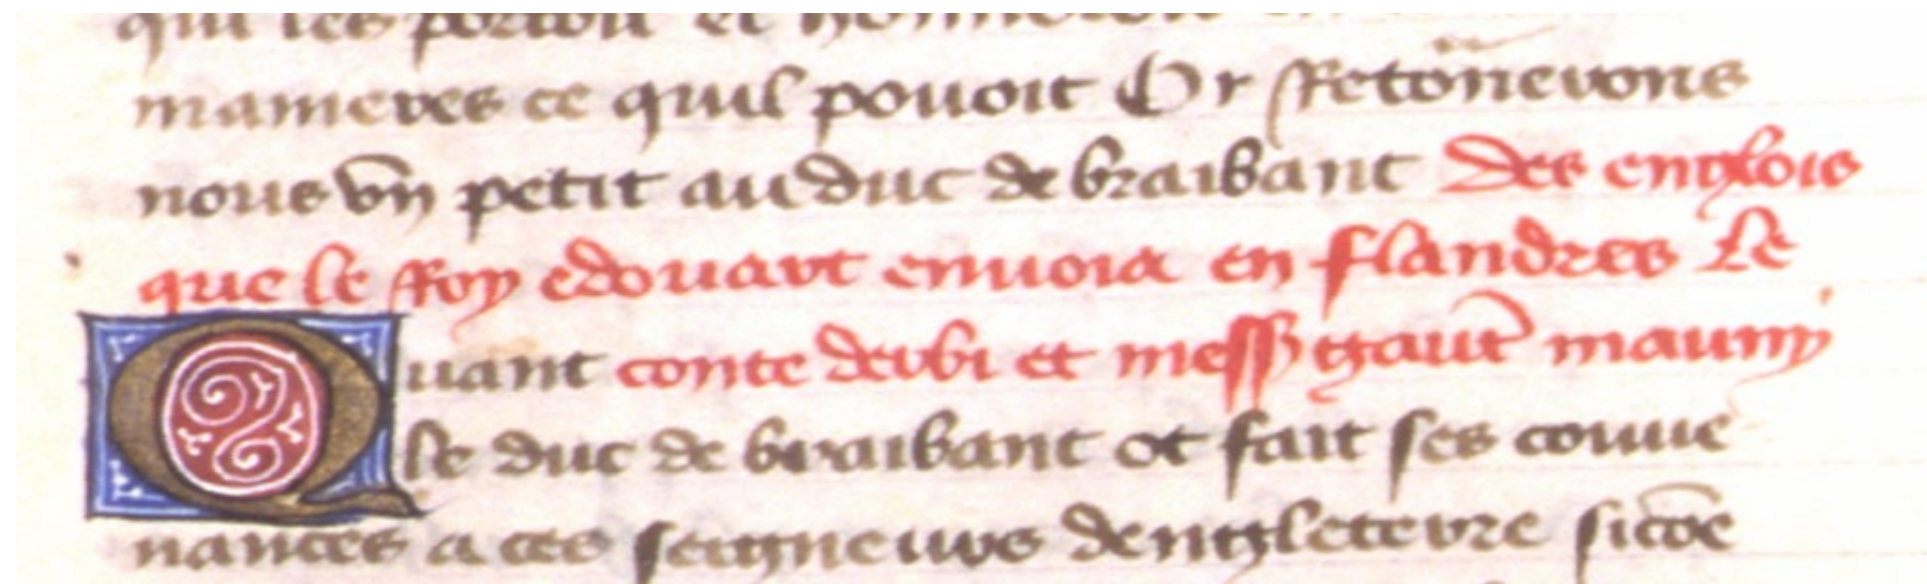 qui les portoit et honnoroit en
manieres ce quil pouoit Or Retou͂nerons
nous vn̄ petit au duc de braibant Des englois
que le Roy edouart enuoia en flandres Le
Quant conte derbi et mess̄ gaut͛ mauny
le duc de braibant ot fait ses conue
nances a ces seigneurs dengleterre sicōe